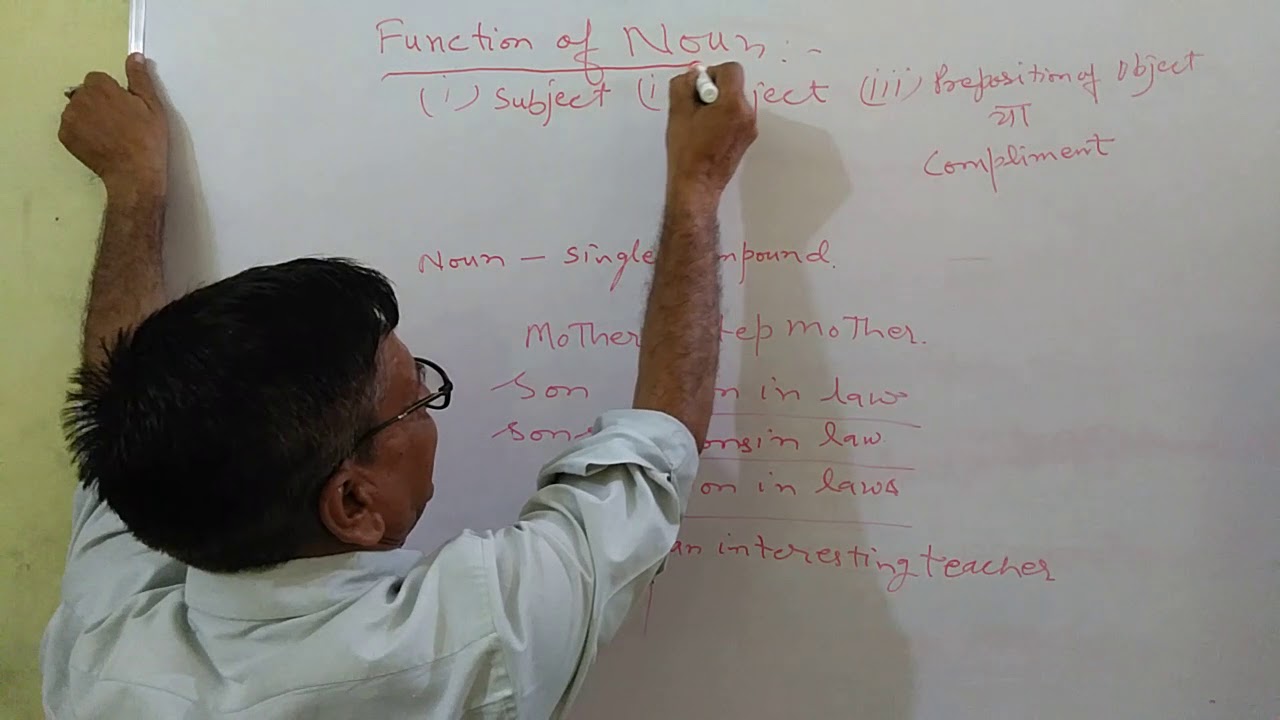 Function of Noun :-
(i) Subject (i ject (iii) Preposition of Object
या
Compliment
Noun – single mpound.
Mother tep mother.
Son n in law
sons onsin law
on in laws
an interesting teacher